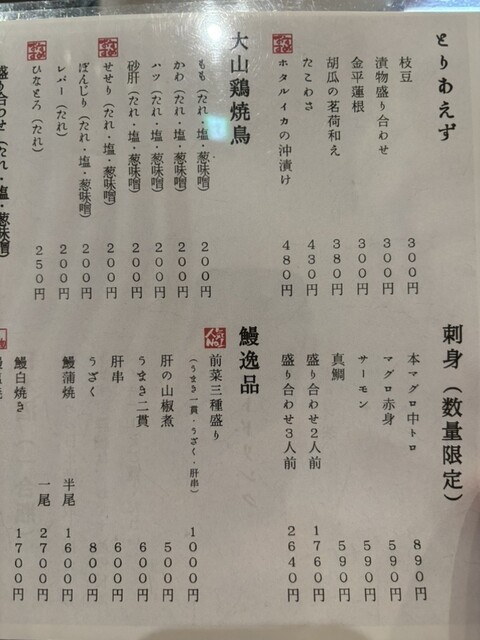 とりあえず
枝豆 300円
漬物盛り合わせ 300円
金平蓮根 300円
胡瓜の茗荷和え 380円
たこわさ 430円
ホタルイカの沖漬け 480円
大山鶏焼鳥
もも(たれ・塩・葱味噌) 200円
かわ(たれ・塩・葱味噌) 200円
ハツ(たれ・塩・葱味噌) 200円
砂肝(たれ・塩・葱味噌) 200円
せせり(たれ・塩・葱味噌) 200円
ぼんじり(たれ・塩・葱味噌) 200円
レバー(たれ) 200円
ひなとろ(たれ) 250円
盛り合わせ(たれ・塩・葱味噌)
刺身(数量限定)
本マグロ中トロ 890円
マグロ赤身 590円
サーモン 590円
真鯛 590円
盛り合わせ2人前 1760円
盛り合わせ3人前 2640円
鰻逸品
前菜三種盛り
(うまき一貫・うざく・肝串) 1000円
肝の山椒煮 500円
うまき二貫 600円
肝串 600円
うざく 800円
鰻蒲焼 半尾 1600円
一尾 2700円
鰻白焼き 1700円